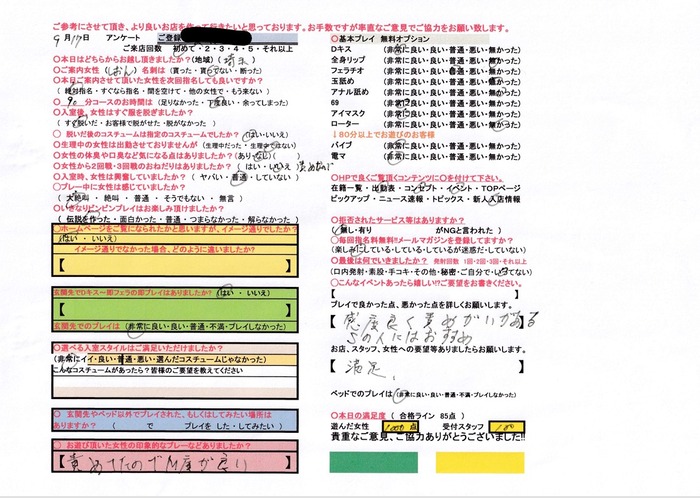 ご参考にさせて頂き、より良いお店を作って行きたいと思っております。お手数ですが率直なご意見でご協力をお願い致します。
9月17日 アンケート ご登録
ご来店回数 初めて・2・3・4・5・それ以上
○本日はどちらからお越し頂きましたか?(地域)(埼玉)
○ご案内女性(しおん)名刺は(貰った・貰ってない・断った)
○本日ご案内させて頂いた女性を次回指名しても良いですか?
(絶対指名・すぐなら指名・間を空けて・他の女性で・もう来ない)
○90分コースのお時間は(足りなかった・丁度良い・余ってしまった)
○入室後、女性はすぐ服を脱ぎましたか?
(すぐ脱いだ・お客様で脱がせた・脱がなかった)
○脱いだ後のコスチュームは指定のコスチュームでしたか?(はい・いいえ)
○生理中の女性は出勤させておりませんが(生理中だった・生理中ではない)
○女性の体臭や口臭など気になる点はありましたか?(あり・なし)
○女性から2回戦・3回戦のおねだりはありましたか?(はい・いいえ)
○入室時、女性は興奮していましたか?(ヤバい・普通・していない)
○プレー中に女性は感じていましたか?
(大絶叫・絶叫・普通・そうでもない・無言)
○いきなりピンピンプレイはお楽しみ頂けましたか?
(伝説を作った・面白かった・普通・つまらなかった・解らなかった)
○ホームページをご覧になられたかと思いますが、イメージ通りでしたか?
(はい・いいえ)
イメージ通りでなかった場合、どのように違いましたか?
【 】
玄関先でDキス~即フェラの即プレイはありましたか?(はい・いいえ)
【 】
玄関先でのプレイは(非常に良い・良い・普通・不満・プレイしなかった)
○選べる入室スタイルはご満足いただけましたか?
(非常にイイ・良い・普通・悪い・選んだコスチュームじゃなかった)
こんなコスチュームがあったら?皆様のご要望を教えてください
○玄関先やベッド以外でプレイされた、もしくはしてみたい場所は
ありますか?( で プレイを した・してみたい)
○お遊び頂いた女性の印象的なプレーなどありましたか?
【責めてたのでM度が良い】
○基本プレイ 無料オプション
Dキス (非常に良い・良い・普通・悪い・無かった)
全身リップ (非常に良い・良い・普通・悪い・無かった)
フェラチオ (非常に良い・良い・普通・悪い・無かった)
玉舐め (非常に良い・良い・普通・悪い・無かった)
アナル舐め (非常に良い・良い・普通・悪い・無かった)
69 (非常に良い・良い・普通・悪い・無かった)
アイマスク (非常に良い・良い・普通・悪い・無かった)
ローター (非常に良い・良い・普通・悪い・無かった)
↓80分以上でお遊びのお客様
バイブ (非常に良い・良い・普通・悪い・無かった)
電マ (非常に良い・良い・普通・悪い・無かった)
○HPで良くご覧頂くコンテンツに○を付けて下さい。
在籍一覧・出勤表・コンセプト・イベント・TOPページ
ピックアップ・ニュース速報・トピックス・新人入店情報
○拒否されたサービス等はありますか?
(無し・有り がNGと言われた)
○毎回指名料無料!!メールマガジンを登録してますか?
(楽しみにしている・している・しているが迷惑だ・していない)
○最後は何でいきましたか? 発射回数 1回・2回・3回・それ以上
(口内発射・素股・手コキ・その他・秘密・ご自分で・いってない)
○こんなイベントあったら嬉しい!?ご要望をお書きください。
【 】
プレイで良かった点、悪かった点を詳しくお願いします。
【感度良く責めがいがある
Sの人にはおすすめ】
お店、スタッフ、女性への要望等ありましたらお願いします。
【満足。】
ベッドでのプレイは(非常に良い・良い・普通・不満・プレイしなかった)
○本日の満足度(合格ライン 85点)
遊んだ女性 1000点 受付スタッフ
貴重なご意見、ご協力ありがとうございました!!